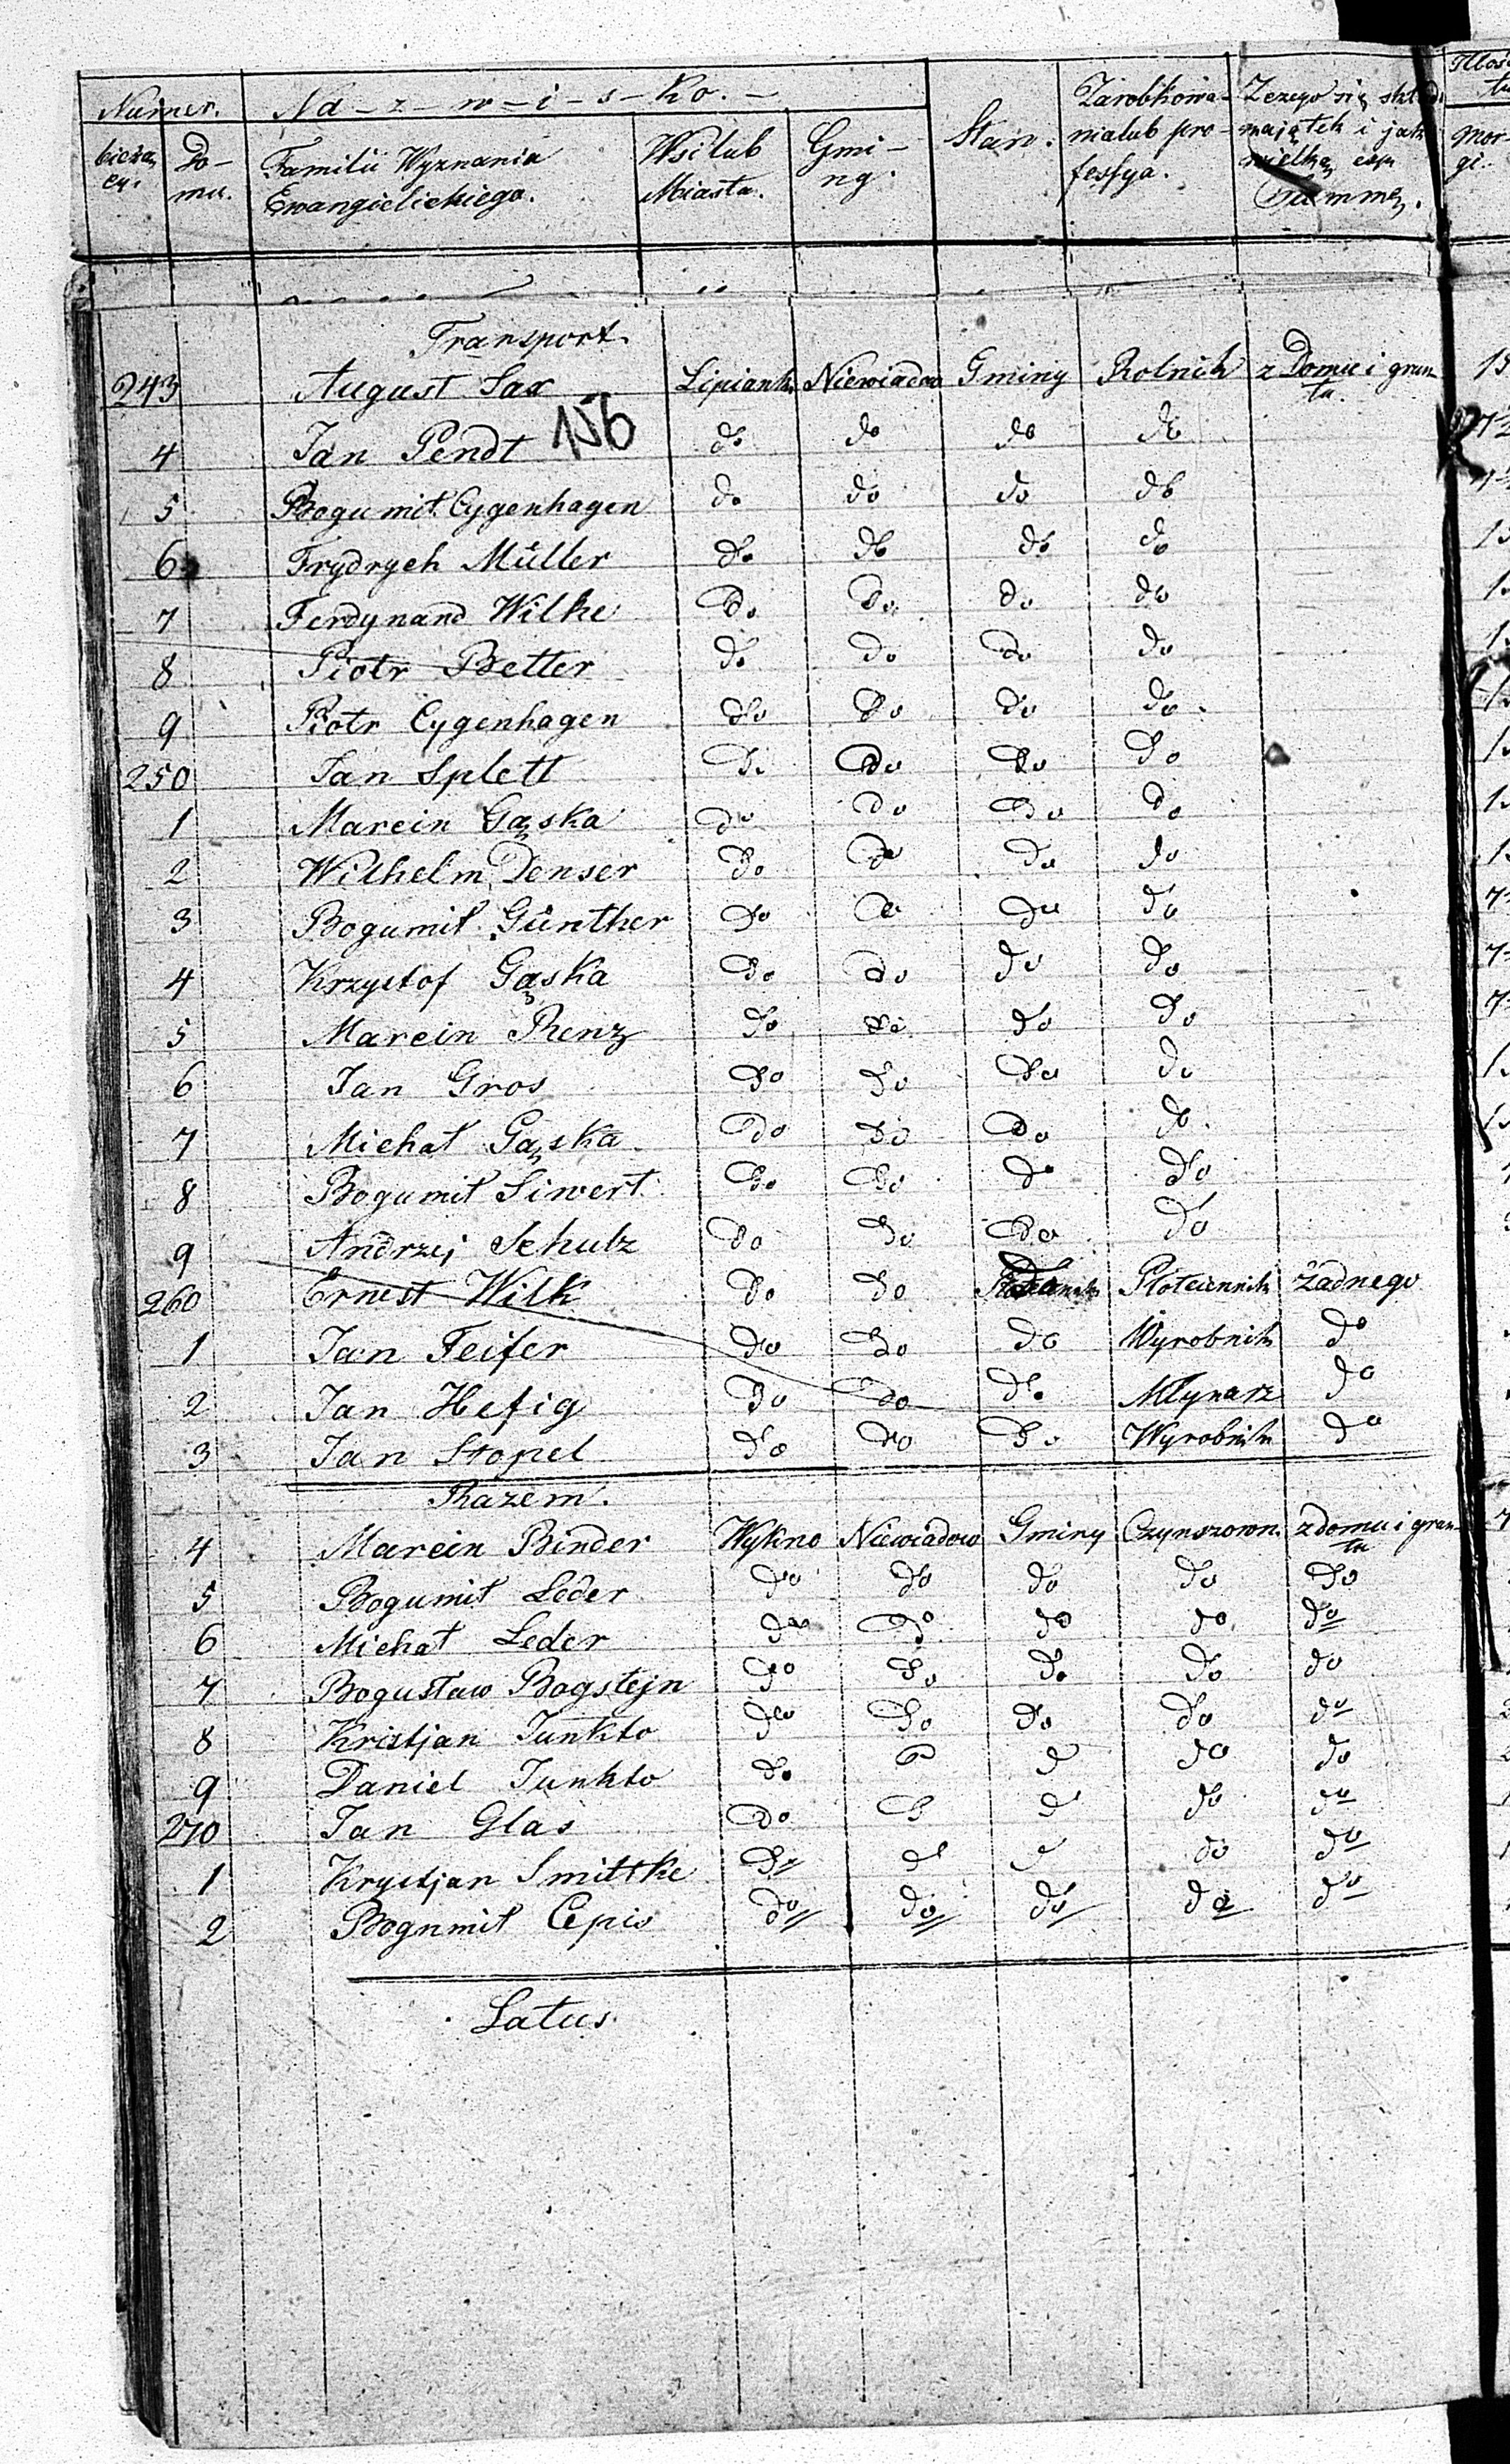 Numer. Na-z-w-i-s-ko.- Stan. Zarobkowa- Zczego się skład
bieżą Do- Familii Wyznania Wsi lub Gmi- nialub pro- majątek i jak
cy. mu. Ewangielickiego. Miasta. ny. fessya. wielką Summę. Mor- gi.
Transport.
243 August Sax Lipianki Niewiadow Gminy Rolnik z Domu i grun tu.
156
4 Jan Pendt do do do do
5 Bogumił Cygenhagen do do do do
6 Frydrych Müller do do do do
7 Ferdynand Wilke do do do do
8 Piotr Better do do do do
9 Piotr Cygenhagen do do do do
250 Jan Splett do do do do
1 Marcin Gąska do do do do
2 Wilhelm Denser do do do do
3 Bogumił Günther do do do do
4 Krzystof Gąska do do do do
5 Marcin Renz do do do do
6 Jan Gros do do do do
7 Michał Gąska do do do do
8 Bogumił Siwert do do do do
9 Andrzej Schulz do do do do
260 Ernest Wilk do do Płóciennik Żadnego
1 Jan Feifer do do do Wyrobnik do
2 Jan Hefig do do do Młynarz do
3 Jan Stopel do do do Wyrobnik do
Razem.
4 Marcin Binder Wykno Niewiadow Gminy Czynszown. z domu i grun tu
5 Bogumił Leder do do do do do
6 Michał Leder do do do do do
7 Bogusław Bogstejn do do do do do
8 Kristjan Junkto do do do do do
9 Daniel Junkto do do do do do
270 Jan Glas do do do do do
1 Krystjan Smittke do do do do do
2 Bogumił Cepio do do do do do
Latus.